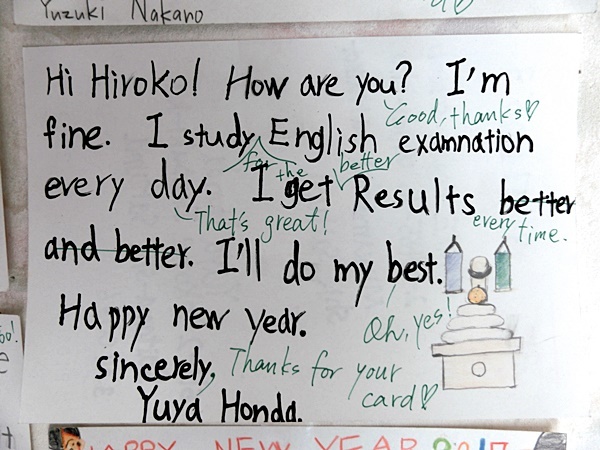 Yuzuki Nakano
Hi Hiroko! How are you? I'm
Good, thanks♡
fine. I study English examnation
for the better
every day. I get Results better
That's great! every time.
and better. I'll do my best.
Happy new year. Oh, yes!
sincerely, Thanks for your
card♡
Yuya Honda.
HAPPY NEW YEAR 2017